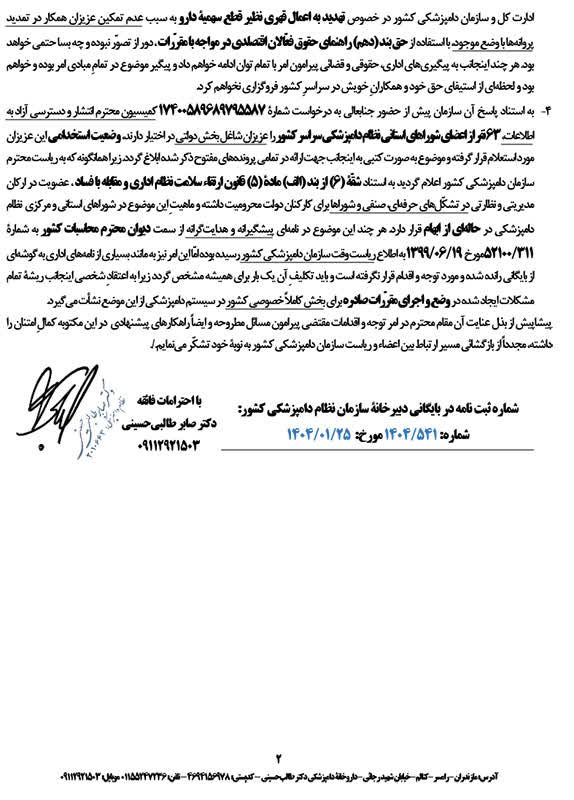 ادارت کل و سازمان دامپزشکی کشور در خصوص تهدید به اعمال قهری نظیر قطع سهمیهٔ دارو به سبب عدم تمکین عزیزان همکار در تمدید
پروانه‌ها با وضع موجود، با استفاده از حق بند (دهم) راهنمای حقوق فعالان اقتصادی در مواجه با مقررات، دور از تصوّر نبوده و چه بسا حتمی خواهد
بود. هر چند اینجانب به پیگیری‌های اداری، حقوقی و قضائی پیرامون امر با تمام توان ادامه خواهم داد و پیگیر موضوع در تمام مبادی امر بوده و خواهم
بود و لحظه‌ای از استیفای حق خود و همکاران خویش در سراسر کشور فروگزاری نخواهم کرد.
۴- به استناد پاسخ آن سازمان پیش از حضور جنابعالی به درخواست شمارهٔ ۱۷۴۰۰۵۸۹۶۸۹۷۹۵۵۸۷ کمیسیون محترم انتشار و دسترسی آزاد به
اطلاعات، ۶۳ نفر از اعضای شوراهای استانی نظام دامپزشکی سراسر کشور را عزیزان شاغل بخش دولتی در اختیار دارند. وضعیت استخدامی این عزیزان
مورد استعلام قرار گرفته و موضوع به صورت کتبی به اینجانب جهت ارائه در تمامی پرونده‌های مفتوح ذکر شده ابلاغ گردد. زیرا همانگونه که به ریاست محترم
سازمان دامپزشکی کشور اعلام گردید به استناد شقّهٔ (۶) از بند (الف) مادهٔ (۵) قانون ارتقاء سلامت نظام اداری و مقابله با فساد، عضویت در ارکان
مدیریتی و نظارتی در تشکّل‌های حرفه‌ای، صنفی و شوراها برای کارکنان دولت محرومیت داشته و ماهیّت این موضوع در شوراهای استانی و مرکزی نظام
دامپزشکی در حاله‌ای از ابهام قرار دارد. هر چند این موضوع در نامه‌ای پیشگیرانه و هدایت‌گرانه از سمت دیوان محترم محاسبات کشور به شمارهٔ
۵۲۱۰۰/۳۱۱ مورخ ۱۳۹۹/۰۶/۱۹ به اطلاع ریاست وقت سازمان دامپزشکی کشور رسیده بوده امّا این امر نیز به مانند بسیاری از نامه‌های اداری به گوشه‌ای
از بایگانی رانده شده و مورد توجه و اقدام قرار نگرفته است و باید تکلیف آن یک بار برای همیشه مشخص گردد زیرا به اعتقاد شخصی اینجانب ریشهٔ تمام
مشکلات ایجاد شده در وضع و اجرای مقرّرات صادره برای بخش کاملاً خصوصی کشور در سیستم دامپزشکی از این موضع نشأت می‌گیرد.
پیشاپیش از بذل عنایت آن مقام محترم در امر توجه و اقدامات مقتضی پیرامون مسائل مطروحه و ایضاً راهکارهای پیشنهادی در این مکتوبه کمال امتنان را
داشته، مجدداً از بازگشائی مسیر ارتباط بین اعضاء و ریاست سازمان دامپزشکی کشور به نوبهٔ خود تشکّر می‌نمایم./.
با احترامات فائقه
دکتر صابر طالبی‌حسینی
۰۹۱۱۲۹۲۱۵۰۳
شماره ثبت نامه در بایگانی دبیرخانهٔ سازمان نظام دامپزشکی کشور:
شماره: ۱۴۰۴/۵۴۱ مورخ: ۱۴۰۴/۰۱/۲۵
۲
آدرس: مازندران – رامسر – کتالم – خیابان شهید رجائی – داروخانهٔ دامپزشکی دکتر طالب‌حسینی – کدپستی: ۴۶۹۴۱۵۶۹۷۸ – تلفن: ۰۱۱۵۵۲۴۷۲۳۶ موبایل: ۰۹۱۱۲۹۲۱۵۰۳